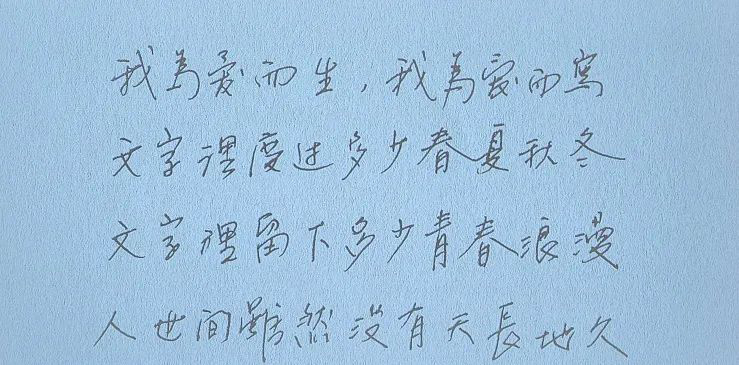 我為愛而生，我為愛而寫
文字裡度过多少春夏秋冬
文字裡留下多少青春浪漫
人世間雖然沒有天長地久